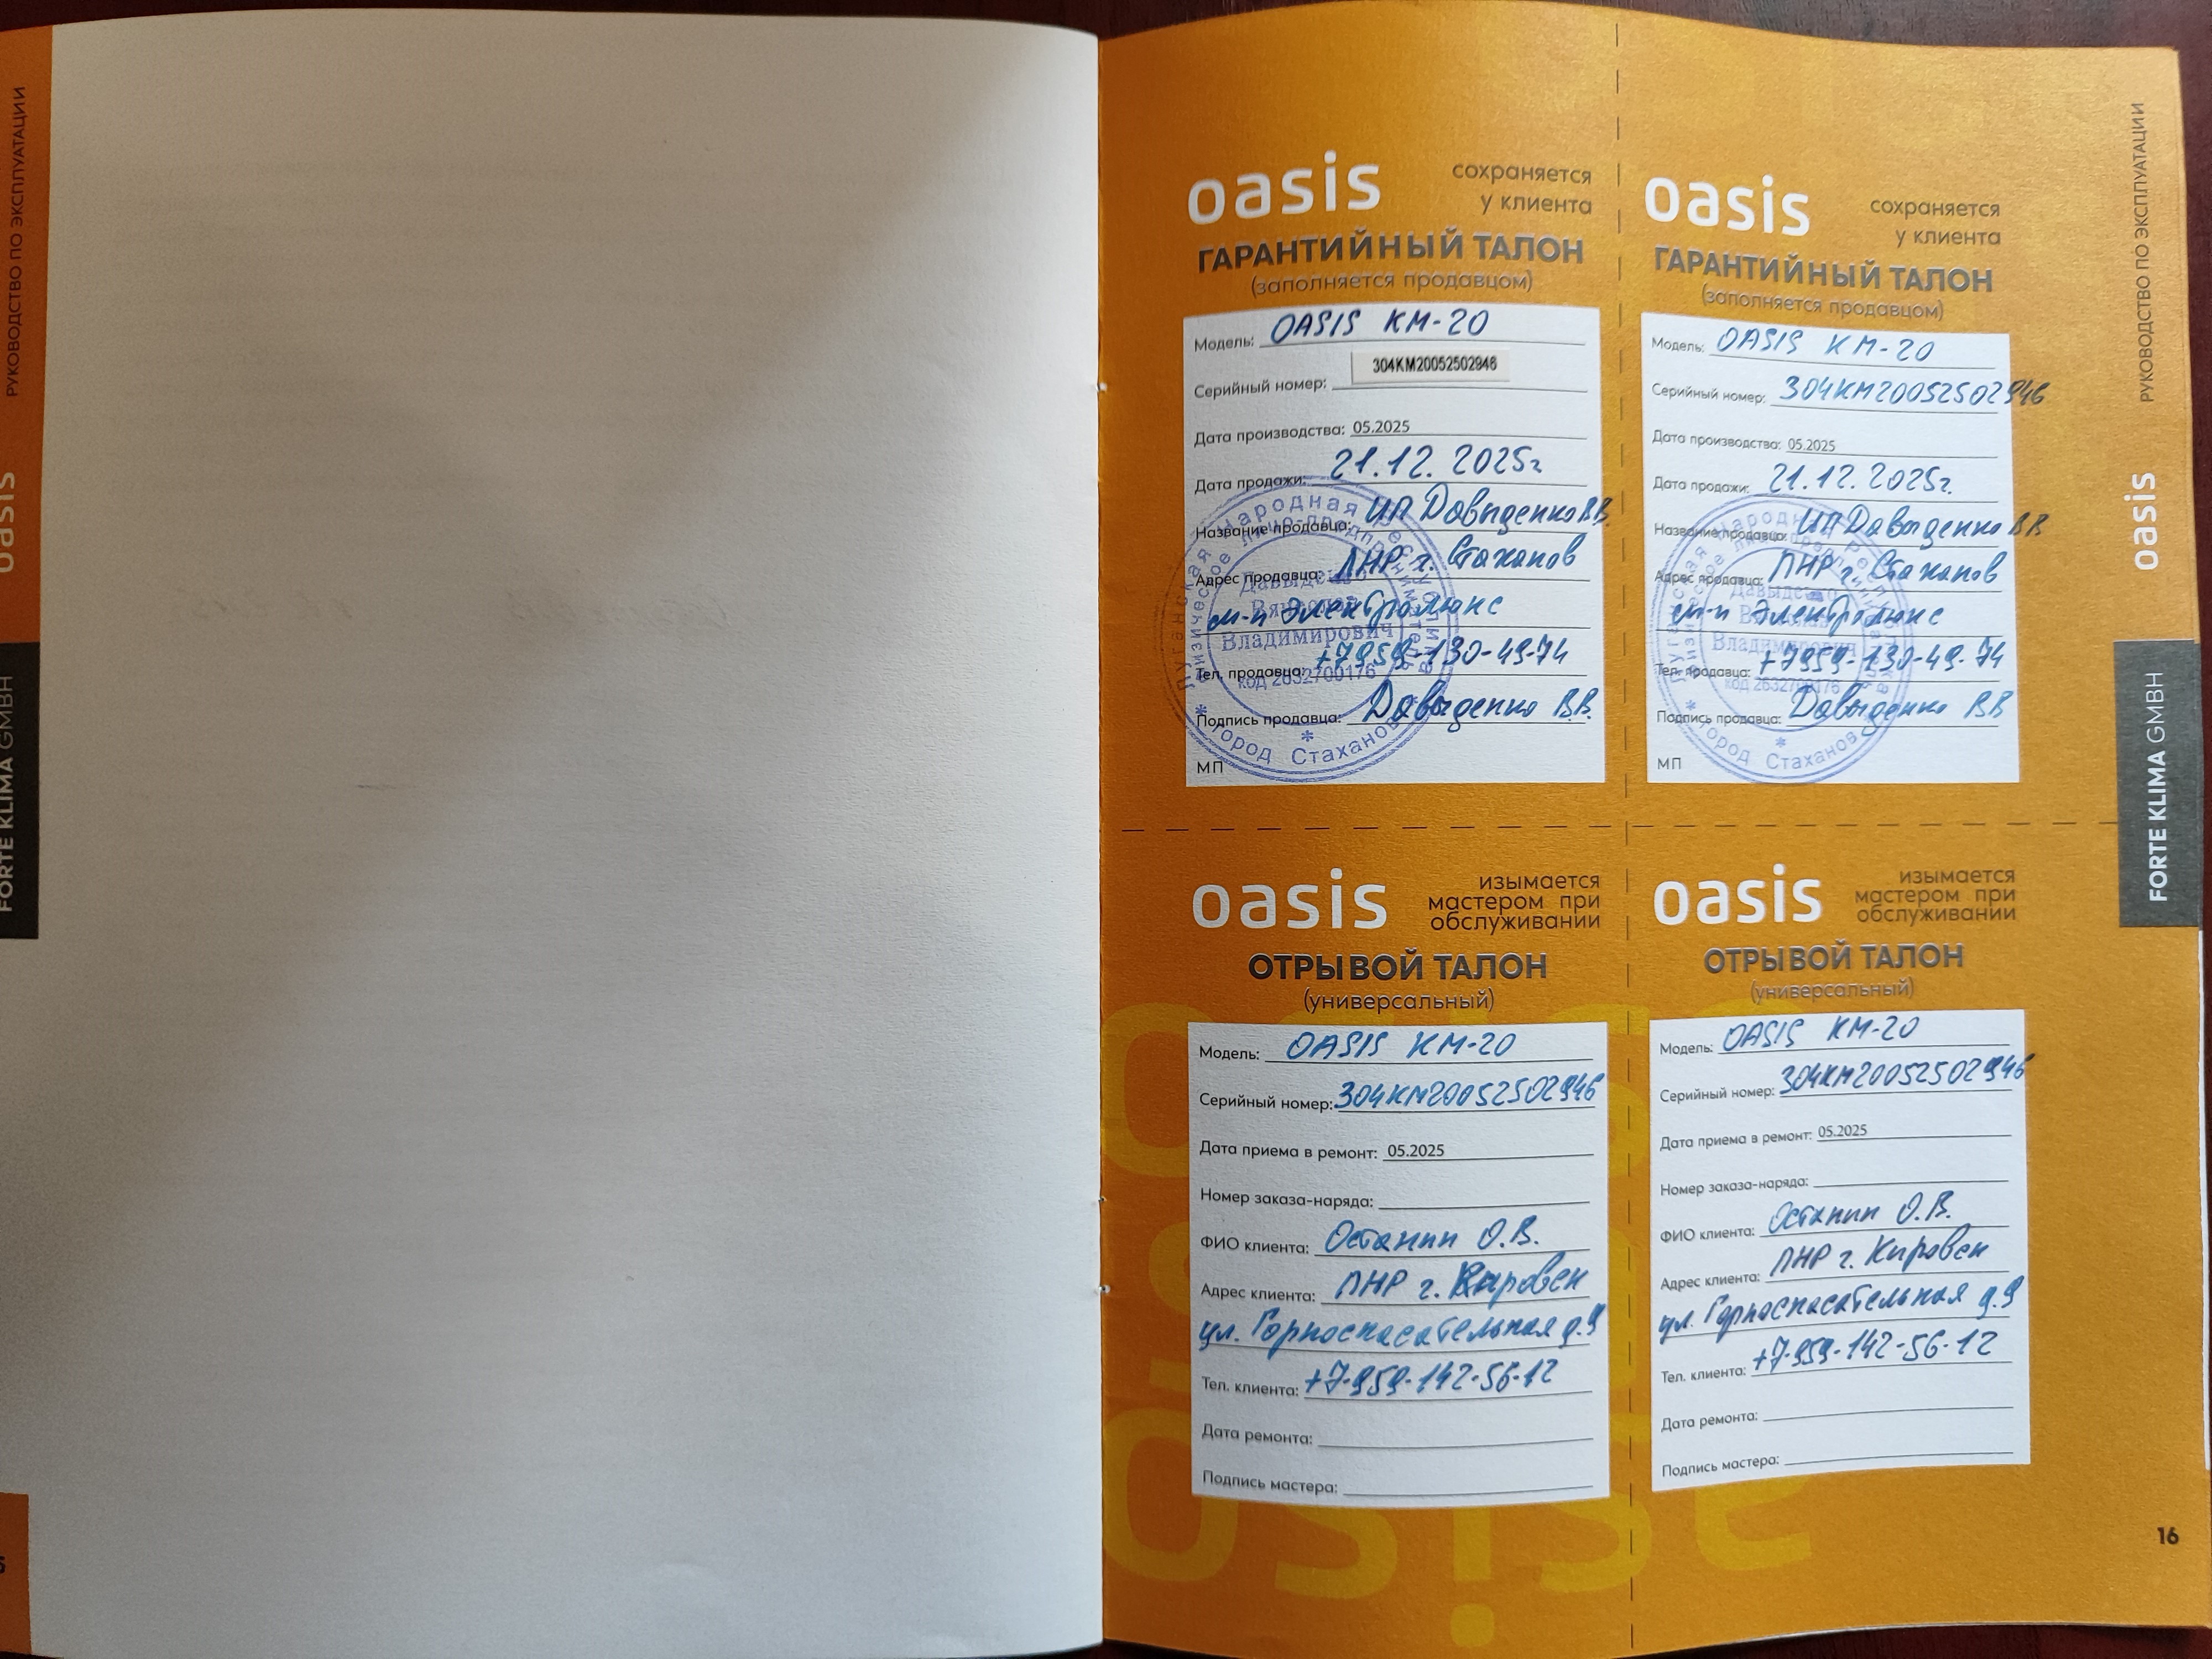 РУКОВОДСТВО ПО ЭКСПЛУАТАЦИИ
oasis
FORTE KLIMA GMBH
oasis
сохраняется
у клиента
ГАРАНТИЙНЫЙ ТАЛОН
(заполняется продавцом)
Модель: OASIS KM-20
Серийный номер: 304KM20052502946
Дата производства: 05.2025
Дата продажи: 21.12.2025г
Название продавца: ИП Давыденко В.В.
Адрес продавца: ЛНР г. Стаханов
м-н Электролюкс
Тел. продавца: +7959-130-49-74
Подпись продавца: Давыденко В.В.
МП
Луганская Народная Республика
физическое лицо-предприниматель
Давыденко
Вячеслав
Владимирович
код 2632700176
* город Стаханов *
oasis
сохраняется
у клиента
ГАРАНТИЙНЫЙ ТАЛОН
(заполняется продавцом)
Модель: OASIS KM-20
Серийный номер: 304KM20052502946
Дата производства: 05.2025
Дата продажи: 21.12.2025г.
Название продавца: ИП Давыденко В.В
Адрес продавца: ЛНР г. Стаханов
м-н Электролюкс
Тел. продавца: +7959-130-49-74
Подпись продавца: Давыденко В.В
МП
Давыденко
Владимирович
код 2632700176
* город Стаханов
oasis
изымается
мастером при
обслуживании
ОТРЫВОЙ ТАЛОН
(универсальный)
Модель: OASIS KM-20
Серийный номер: 304KM20052502946
Дата приема в ремонт: 05.2025
Номер заказа-наряда:
ФИО клиента: Останин О.В.
Адрес клиента: ЛНР г. Кировск
ул. Горноспасательная д.9
Тел. клиента: +7-959-142-56-12
Дата ремонта:
Подпись мастера:
oasis
изымается
мастером при
обслуживании
ОТРЫВОЙ ТАЛОН
(универсальный)
Модель: OASIS KM-20
Серийный номер: 304KM20052502946
Дата приема в ремонт: 05.2025
Номер заказа-наряда:
ФИО клиента: Останин О.В.
Адрес клиента: ЛНР г. Кировск
ул. Горноспасательная д.9
Тел. клиента: +7-959-142-56-12
Дата ремонта:
Подпись мастера:
РУКОВОДСТВО ПО ЭКСПЛУАТАЦИИ
oasis
FORTE KLIMA GMBH
16